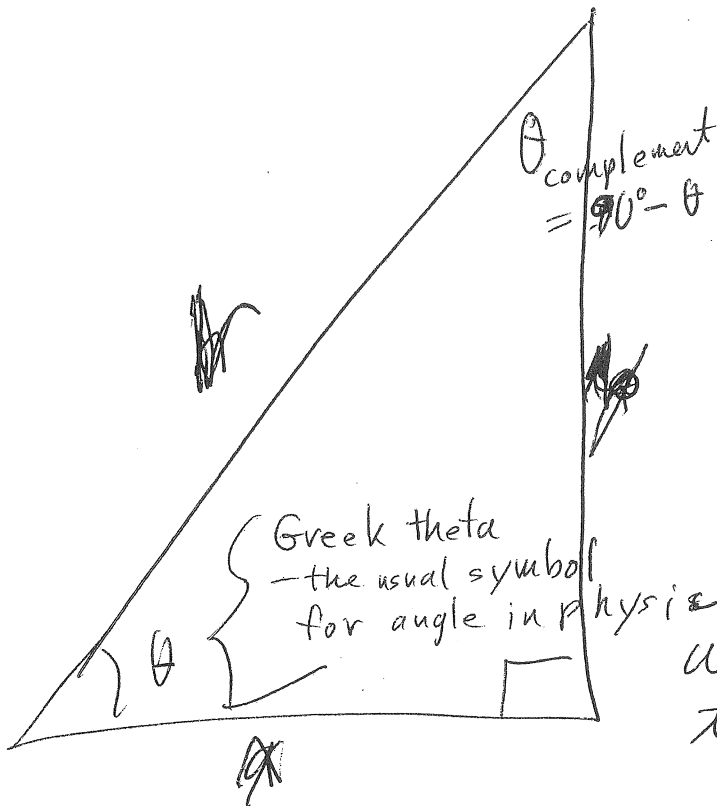 θ
complement
= 90° - θ
r
y
Greek theta
- the usual symbol
for angle in physic
θ
x